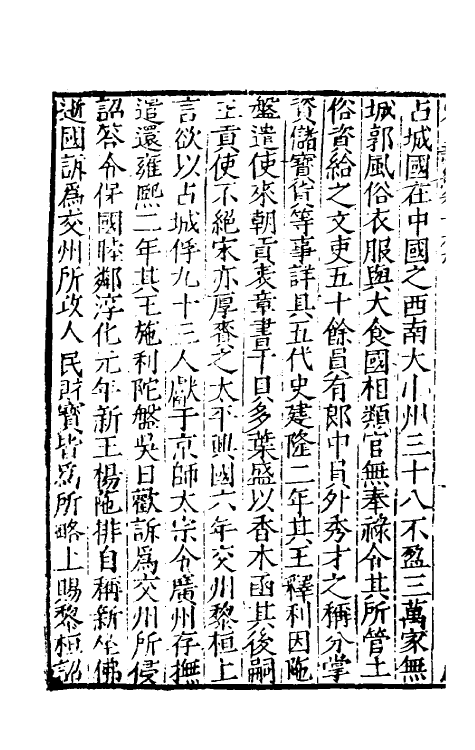 占城國在中國之西南大小州三十八不盈三萬家無
城郭風俗衣服與大食國相類官無奉祿令其所管土
俗資給之文吏五十餘員有郎中員外秀才之稱分掌
資儲寶貨等事詳具五代史建隆二年其王釋利因陁
盤遣使來朝貢表章書于貝多葉盛以香木函其後嗣
王貢使不絕宋亦厚賚之太平興國六年交州黎桓上
言欲以占城俘九十三人獻于京師太宗令廣州存撫
遣還雍熙二年其王施利陀盤吳日歡訴爲交州所侵
詔答令保國睦鄰淳化元年新王楊陁排自稱新坐佛
逝國訴爲交州所攻人民財寶皆爲所略上賜黎桓詔